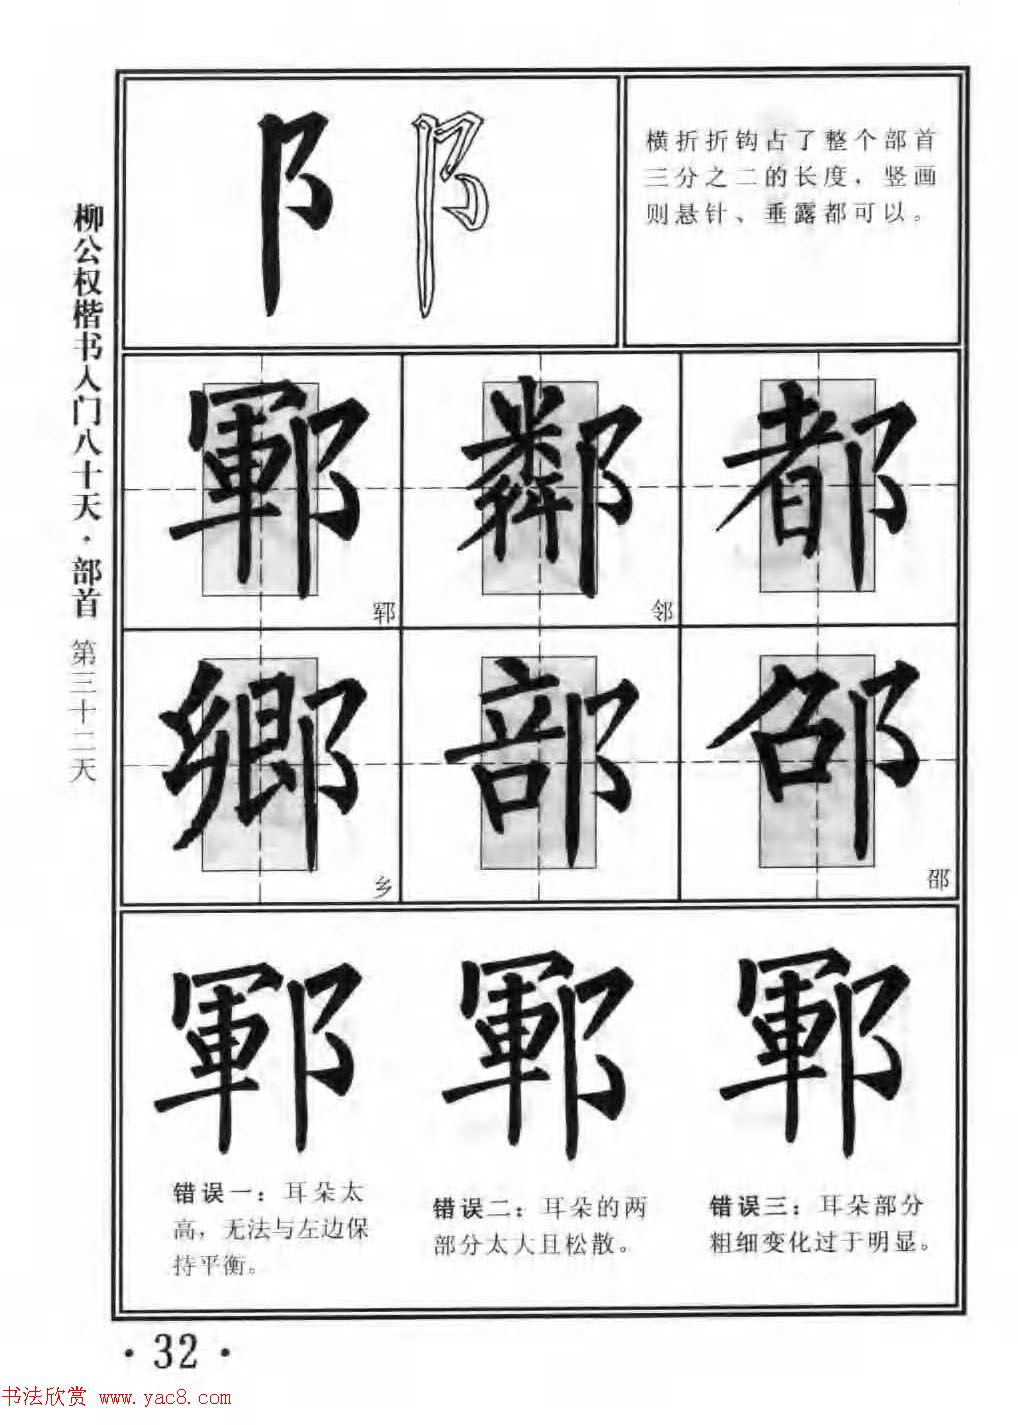 柳公权楷书入门八十天·部首 第三十二天
阝 阝
横折折钩占了整个部首
三分之二的长度，竖画
则悬针、垂露都可以。
鄆 鄰 都
郓 邻
鄉 部 邵
乡 邵
鄆 鄆 鄆
错误一：耳朵太
高，无法与左边保
持平衡。
错误二：耳朵的两
部分太大且松散。
错误三：耳朵部分
粗细变化过于明显。
·32·
书法欣赏 www.yac8.com